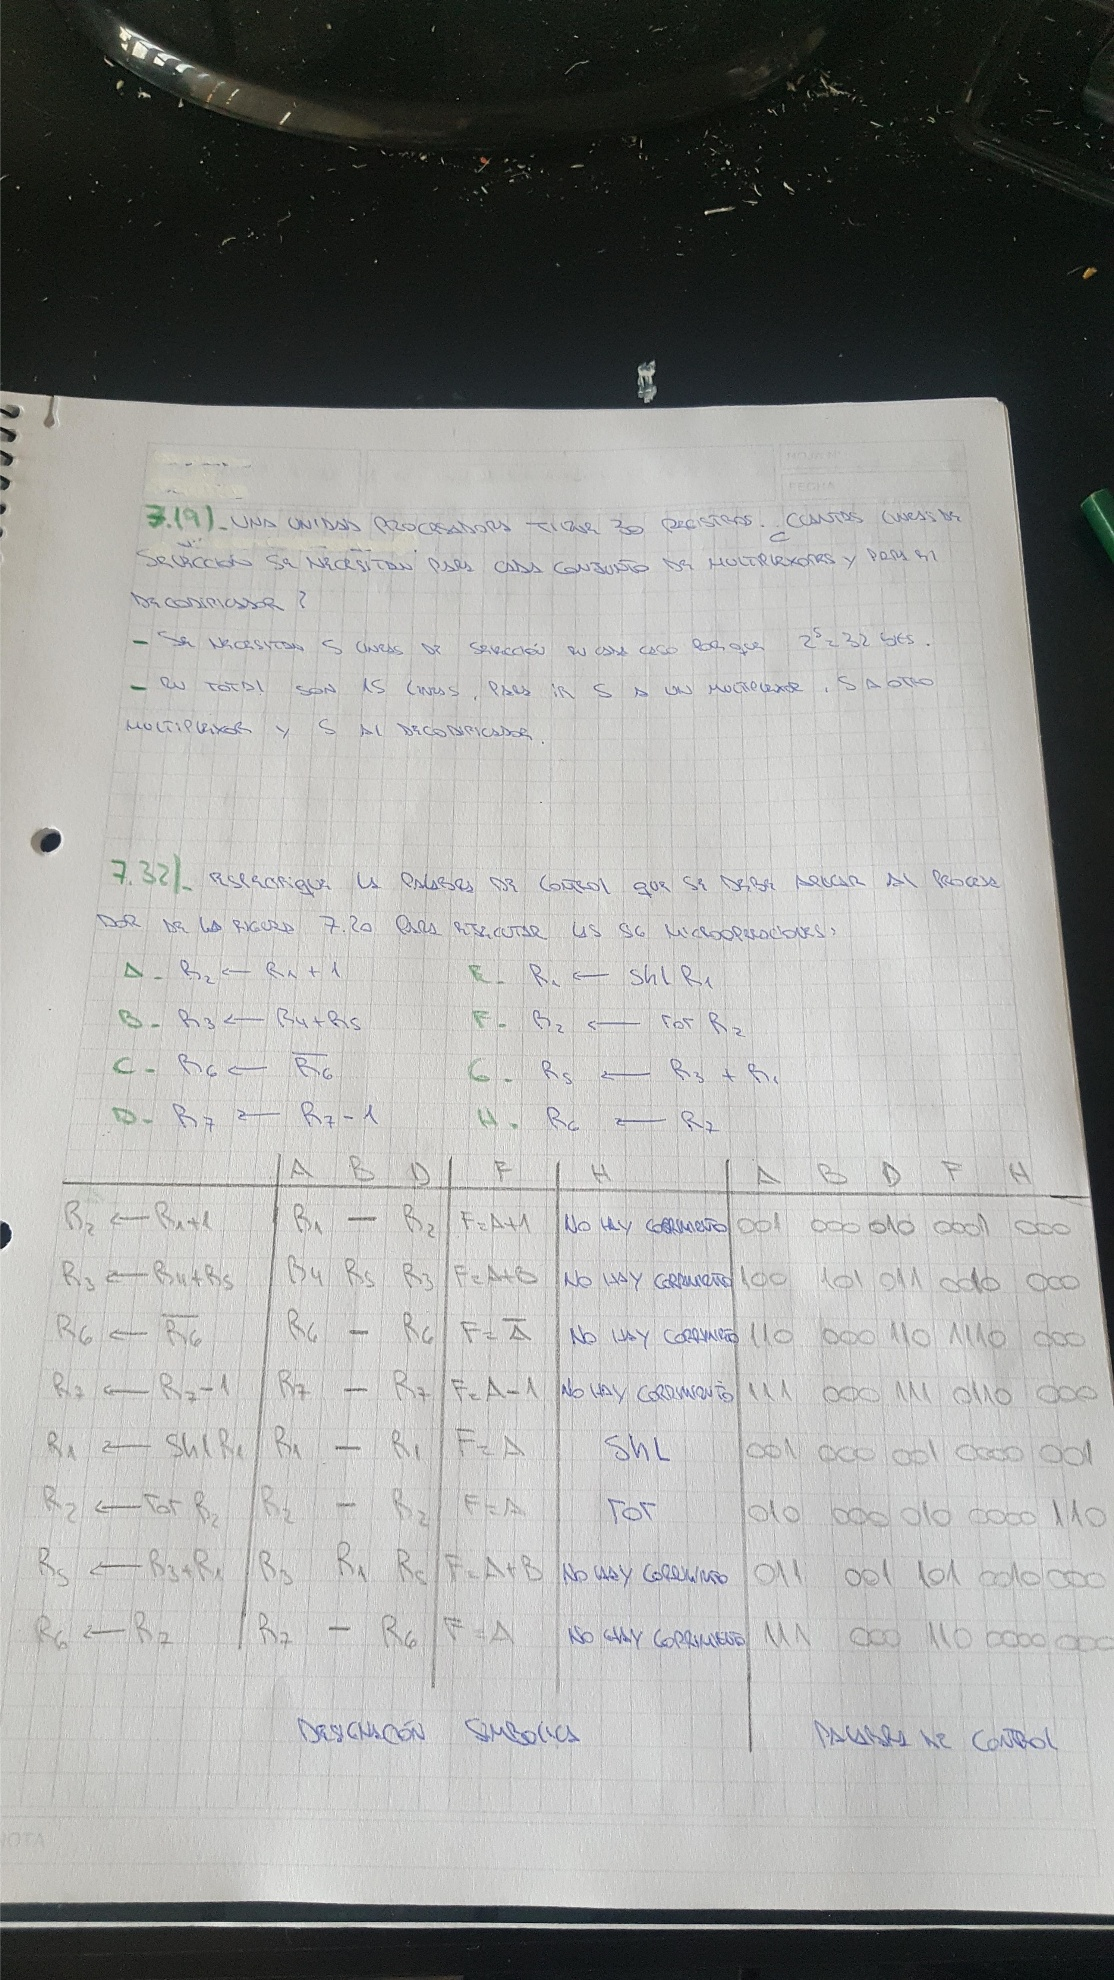 FECHA
7.19)- UNA UNIDAD PROCESADORA TIENE 30 REGISTROS. ¿CUANTAS LINEAS DE
SELECCIÓN SE NECESITAN PARA CADA CONJUNTO DE MULTIPLEXORES Y PARA EL
DECODIFICADOR ?
- SE NECESITAN 5 LINEAS DE SELECCIÓN EN CADA CASO PORQUE 2⁵=32 BITS.
- EN TOTAL SON 15 LINEAS, PARA IR 5 A UN MULTIPLEXOR, 5 A OTRO
MULTIPLEXOR Y 5 AL DECODIFICADOR.
7.32)- ESPECIFIQUE LA PALABRA DE CONTROL QUE SE DEBE APLICAR AL PROCESA
DOR DE LA FIGURA 7.20 PARA EJECUTAR LAS SG MICROOPERACIONES:
A- R₂ ← R₁ + 1 E- R₁ ← Shl R₁
B- R₃ ← R₄+R₅ F- R₂ ← ror R₂
C- R₆ ← R̅₆ G- R₅ ← R₃ + R₁
D- R₇ ← R₇ - 1 H. R₆ ← R₇
A B D F H A B D F H
R₂ ← R₁+1 R₁ - R₂ F=A+1 NO HAY CORRIMIENTO 001 000 010 0001 000
R₃ ← R₄+R₅ R₄ R₅ R₃ F=A+B NO HAY CORRIMIENTO 100 101 011 0010 000
R₆ ← R̅₆ R₆ - R₆ F=A̅ NO HAY CORRIMIENTO 110 000 110 1110 000
R₇ ← R₇-1 R₇ - R₇ F=A-1 NO HAY CORRIMIENTO 111 000 111 0110 000
R₁ ← Shl R₁ R₁ - R₁ F=A ShL 001 000 001 0000 001
R₂ ← ror R₂ R₂ - R₂ F=A ror 010 000 010 0000 110
R₅ ← R₃+R₁ R₃ R₁ R₅ F=A+B NO HAY CORRIMIENTO 011 001 101 0010 000
R₆ ← R₇ R₇ - R₆ F=A NO HAY CORRIMIENTO 111 000 110 0000 000
DESIGNACIÓN SIMBOLICA PALABRA DE CONTROL
NOTA